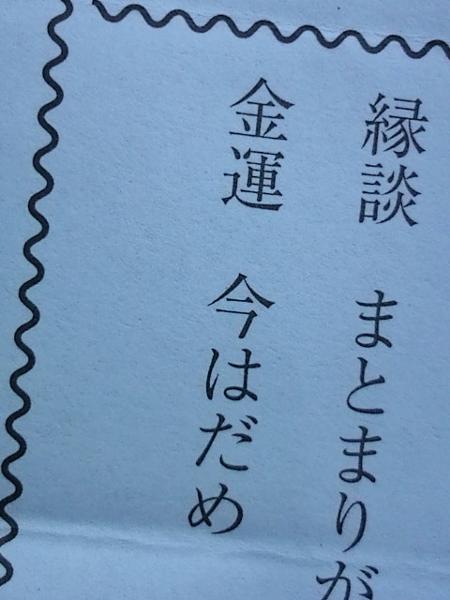 縁談 まとまりが
金運 今はだめ